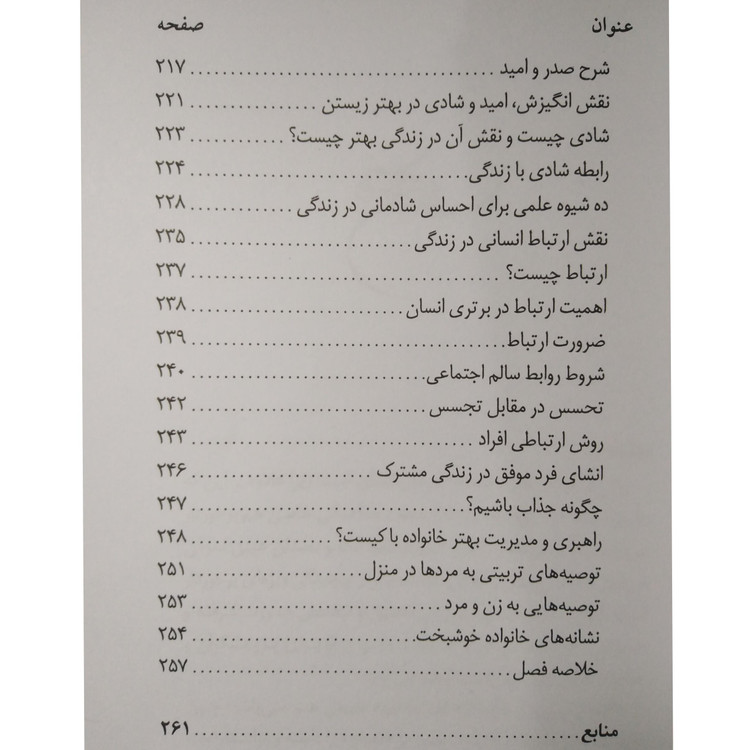 عنوان صفحه
شرح صدر و امید ........................................ ۲۱۷
نقش انگیزش، امید و شادی در بهتر زیستن ................ ۲۲۱
شادی چیست و نقش آن در زندگی بهتر چیست؟ ............ ۲۲۳
رابطه شادی با زندگی.................................... ۲۲۴
ده شیوه علمی برای احساس شادمانی در زندگی ............. ۲۲۸
نقش ارتباط انسانی در زندگی............................ ۲۳۵
ارتباط چیست؟ ....................................... ۲۳۷
اهمیت ارتباط در برتری انسان........................... ۲۳۸
ضرورت ارتباط........................................ ۲۳۹
شروط روابط سالم اجتماعی.............................. ۲۴۰
تحسس در مقابل تجسس.............................. ۲۴۲
روش ارتباطی افراد .................................... ۲۴۳
انشای فرد موفق در زندگی مشترک ....................... ۲۴۶
چگونه جذاب باشیم؟................................... ۲۴۷
راهبری و مدیریت بهتر خانواده با کیست؟ .................. ۲۴۸
توصیه‌های تربیتی به مردها در منزل...................... ۲۵۱
توصیه‌هایی به زن و مرد ................................ ۲۵۳
نشانه‌های خانواده خوشبخت............................. ۲۵۴
خلاصه فصل........................................ ۲۵۷
منابع................................................ ۲۶۱